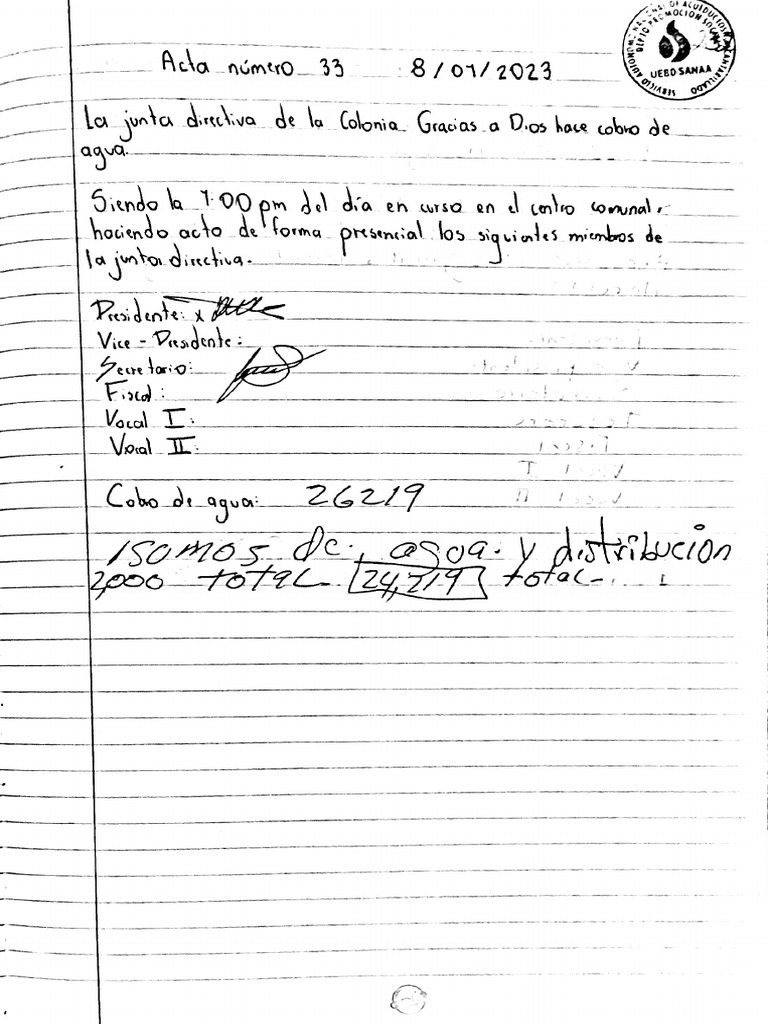 Acta número 33 8/01/2023
SERVICIO AUTONOMO NACIONAL DE ACUEDUCTOS Y ALCANTARILLADO
DEPTO PROMOCION SOCIAL
UEBD SANAA
La junta directiva de la Colonia Gracias a Dios hace cobro de
agua.
Siendo la 1:00 pm del día en curso en el centro comunal,
haciendo acto de forma presencial los siguientes miembros de
la junta directiva.
Presidente: x
Vice - Presidente:
Secretario:
Fiscal:
Vocal I:
Vocal II:
Cobro de agua: 26219
de agua. y distribución
2,000 total 24,219 total